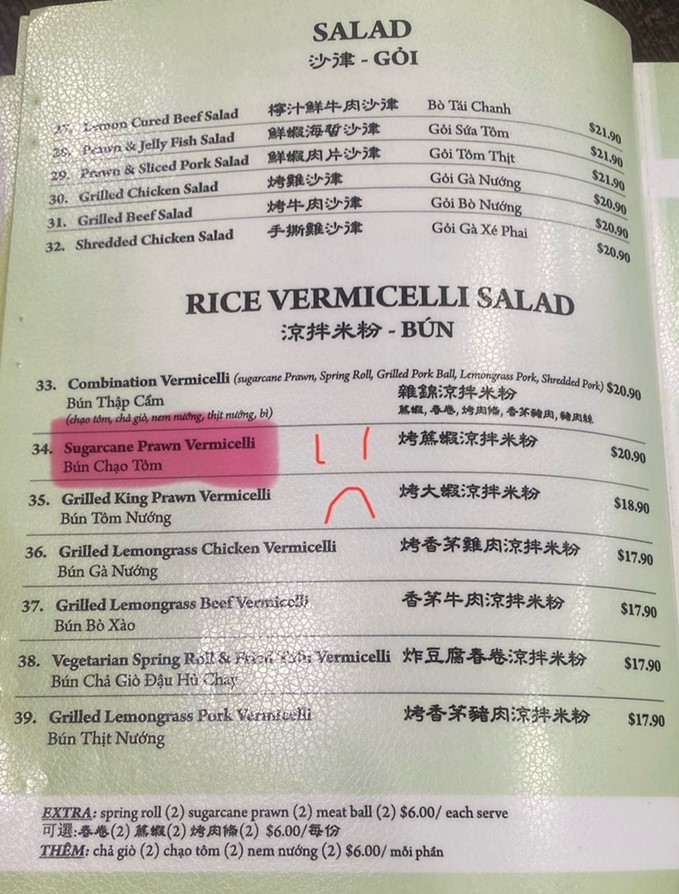 SALAD
沙律 - GỎI
27. Lemon Cured Beef Salad 檸汁鮮牛肉沙律 Bò Tái Chanh $21.90
28. Prawn & Jelly Fish Salad 鮮蝦海蜇沙律 Gỏi Sứa Tôm $21.90
29. Prawn & Sliced Pork Salad 鮮蝦肉片沙律 Gỏi Tôm Thịt $21.90
30. Grilled Chicken Salad 烤雞沙律 Gỏi Gà Nướng $20.90
31. Grilled Beef Salad 烤牛肉沙律 Gỏi Bò Nướng $20.90
32. Shredded Chicken Salad 手撕雞沙律 Gỏi Gà Xé Phai $20.90
RICE VERMICELLI SALAD
涼拌米粉 - BÚN
33. Combination Vermicelli (sugarcane Prawn, Spring Roll, Grilled Pork Ball, Lemongrass Pork, Shredded Pork) $20.90
Bún Thập Cẩm 雜錦涼拌米粉
(chạo tôm, chả giò, nem nướng, thịt nướng, bì) 蔗蝦, 春卷, 烤肉條, 香茅豬肉, 豬肉絲
34. Sugarcane Prawn Vermicelli 烤蔗蝦涼拌米粉 $20.90
Bún Chạo Tôm
35. Grilled King Prawn Vermicelli 烤大蝦涼拌米粉 $18.90
Bún Tôm Nướng
36. Grilled Lemongrass Chicken Vermicelli 烤香茅雞肉涼拌米粉 $17.90
Bún Gà Nướng
37. Grilled Lemongrass Beef Vermicelli 香茅牛肉涼拌米粉 $17.90
Bún Bò Xào
38. Vegetarian Spring Roll & Fried Tofu Vermicelli 炸豆腐春卷涼拌米粉 $17.90
Bún Chả Giò Đậu Hủ Chay
39. Grilled Lemongrass Pork Vermicelli 烤香茅豬肉涼拌米粉 $17.90
Bún Thịt Nướng
EXTRA: spring roll (2) sugarcane prawn (2) meat ball (2) $6.00/ each serve
可選:春卷(2) 蔗蝦(2) 烤肉條(2) $6.00/每份
THÊM: chả giò (2) chạo tôm (2) nem nướng (2) $6.00/ mỗi phần